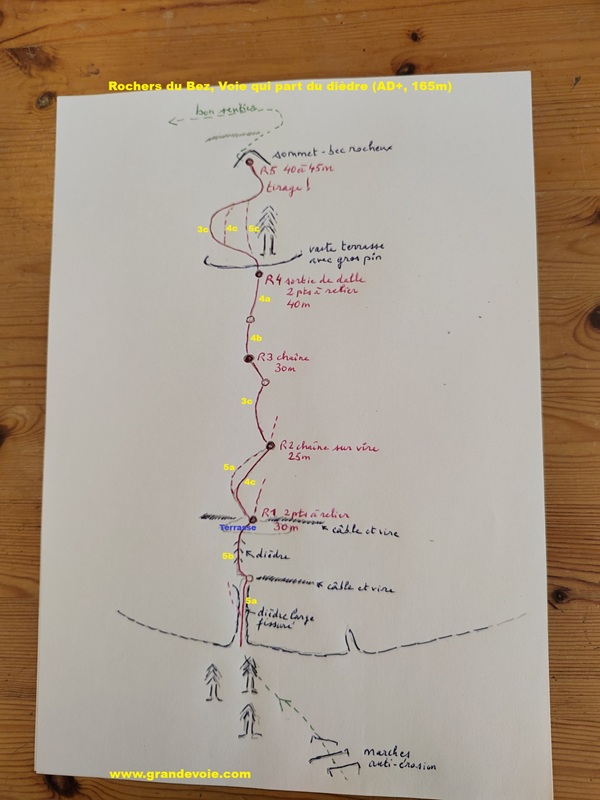 Rochers du Bez, Voie qui part du dièdre (AD+, 165m)
bon sentier
sommet-bec rocheux
R5 40 à 45m
tirage!
3c
4c
5c
vaste terrasse
avec gros pin
R4 sortie de dalle
2 pts à relier
40m
4a
4b
R3 chaîne
30m
3c
R2 chaîne sur vire
25m
5a
4c
R1 2pts à relier
30m
Terrasse
câble et vire
5b
dièdre
câble et vire
5a
dièdre large
fissuré
marches
anti-érosion
www.grandevoie.com